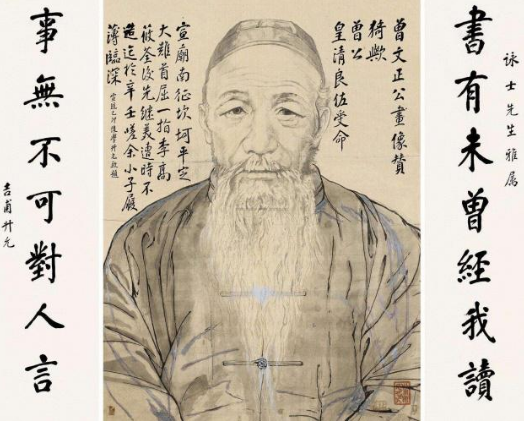 書有未曾經我讀
詠士先生雅屬
曾文正公畫像贊
猗歟
曾公
皇清良佐受命
宣廟南征坎坷平定
大難首屈一指李
筱荃後先繼美遭時不
造迄於辛壬嗟余小子履
薄臨深
宣統乙卯後學升允敬題
事無不可對人言
吉甫升允